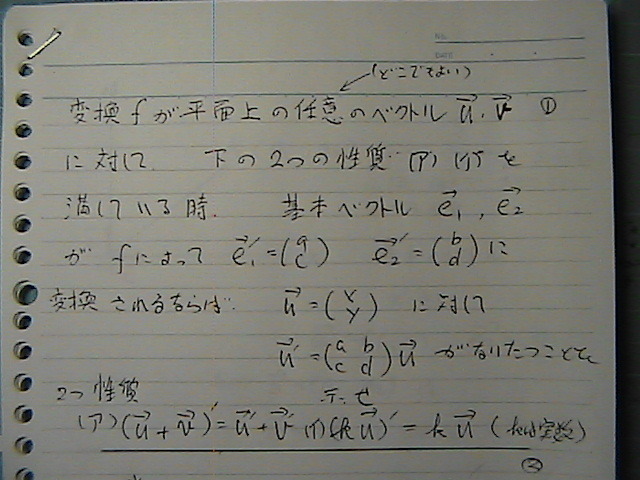 NO.
DATE
(どこでもよい)
変換fが平面上の任意のベクトル u⃗, v⃗ ①
に対して、下の2つの性質 (ア)(イ)を
満している時、 基本ベクトル e⃗₁, e⃗₂
が fによって e⃗₁′=(a c) e⃗₂′=(b d)に
変換されるならば、 u⃗=(x y) に対して
u⃗′=(a b c d)u⃗ がなりたつことを
示せ
2つ性質
(ア)(u⃗+v⃗)′=u⃗′+v⃗′ (イ)(k u⃗)′=k u⃗ (kは実数)
②